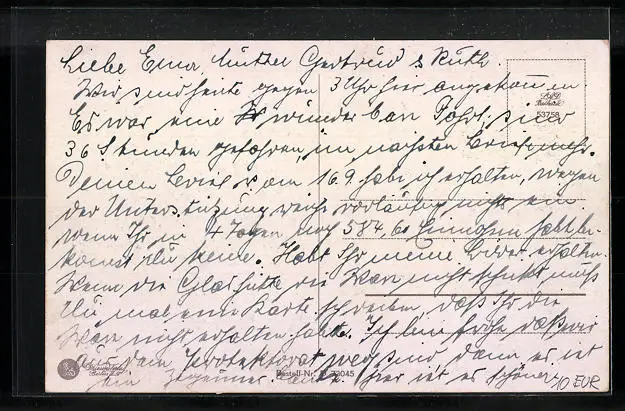 Liebe Erna, Mutter Gertrud & Ruth.
Wir sind heute gegen 3 Uhr hier angekommen.
Es war eine wunderbare Fahrt, sind
36 Stunden gefahren, im nächsten Brief mehr.
Deinen Brief vom 16.9. habe ich erhalten, wegen
der Unterstützung weiss vorläufig nicht ein
wenn Ihr in 4 Tagen noch 584,60
kommst du keine. Habt Ihr meine Bilder erhalten.
Wenn die Glashütte die Ware nicht schickt, musst
Du mal eine Karte schreiben, daß Ihr die
Ware nicht erhalten habt. Ich bin froh daß wir
aus dem Protektorat weg sind denn es ist
ein Zigeuner Hier ist es schöner
53758
Bestell-Nr. 33045
10 EUR